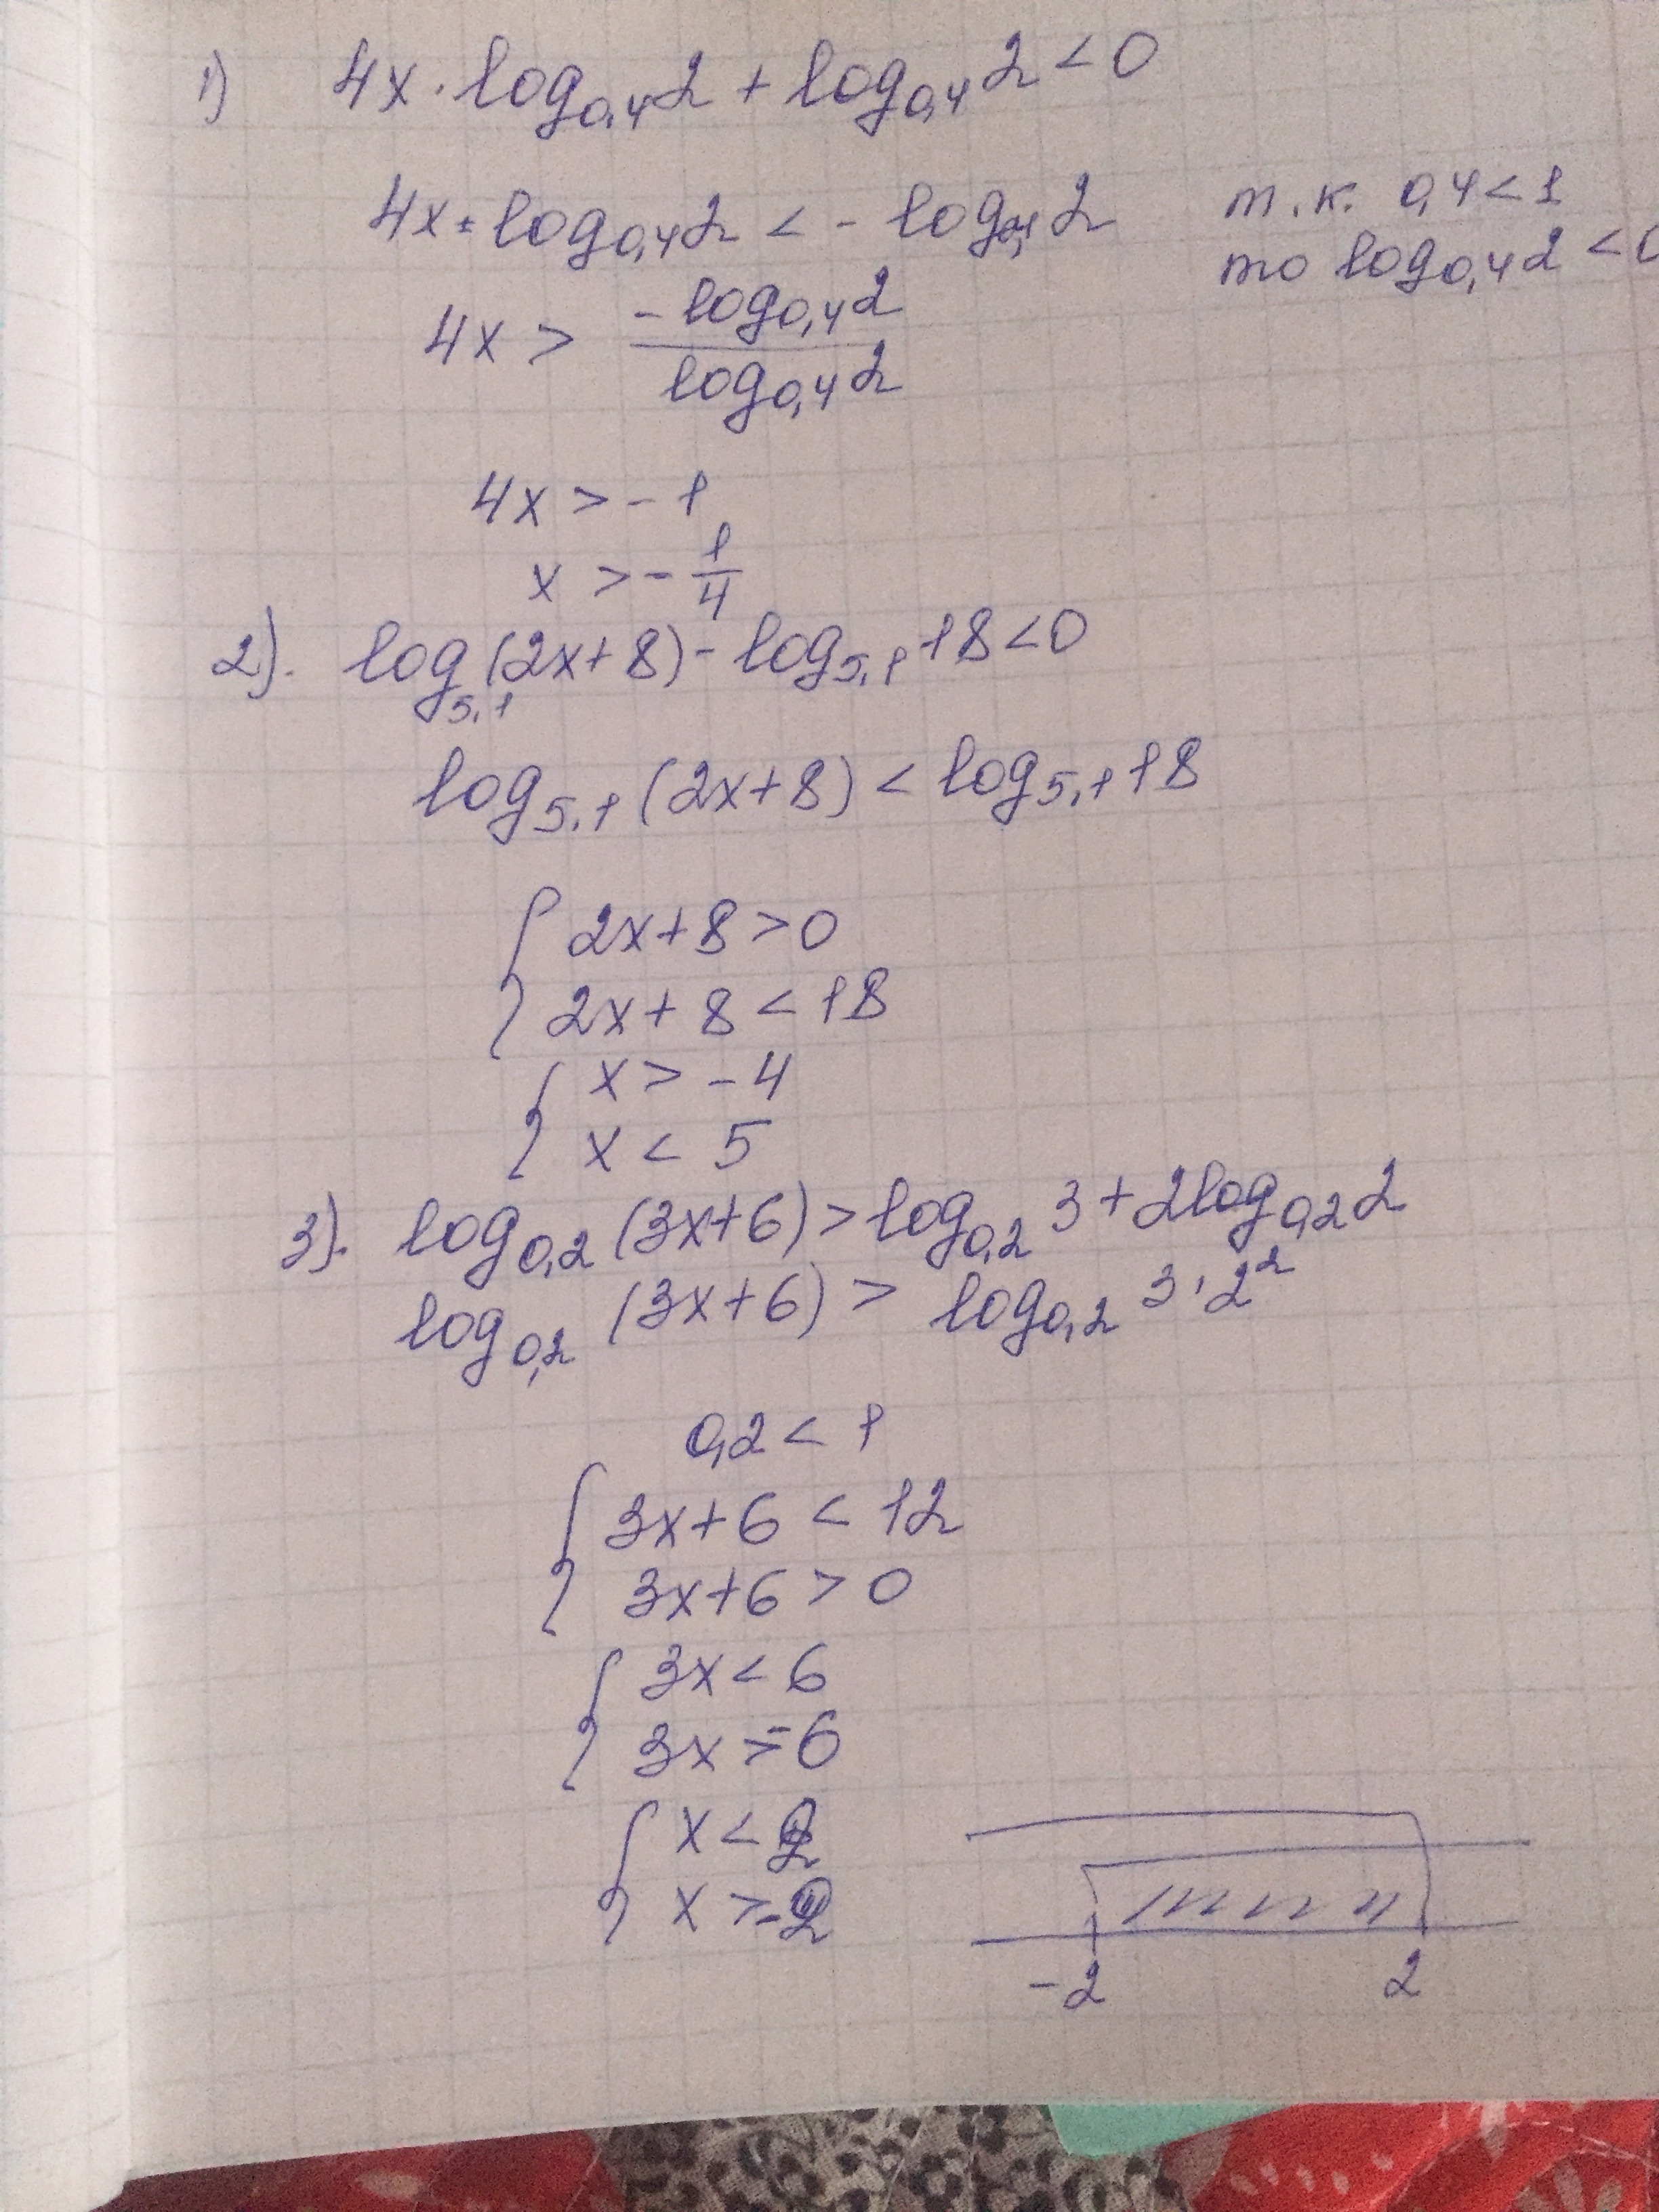 1) 4x · log₀,₄2 + log₀,₄2 < 0
4x · log₀,₄2 < - log₀,₄2
т.к. 0,4 < 1
то log₀,₄2 < 0
4x > -log₀,₄2 / log₀,₄2
4x > - 1
x > - 1/4
2). log₅,₁(2x+8) - log₅,₁18 < 0
log₅,₁(2x+8) < log₅,₁18
{ 2x+8 > 0
2x+8 < 18
{ x > - 4
x < 5
3). log₀,₂(3x+6) > log₀,₂3 + 2log₀,₂2
log₀,₂(3x+6) > log₀,₂3·2²
0,2 < 1
{ 3x+6 < 12
3x+6 > 0
{ 3x < 6
3x > -6
{ x < 2
x > -2
-2 2